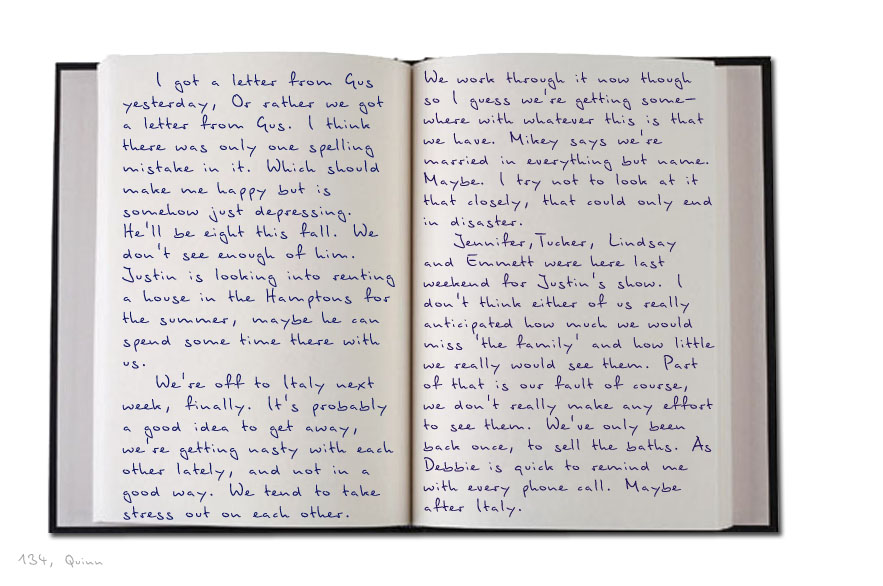 I got a letter from Gus
yesterday, Or rather we got
a letter from Gus. I think
there was only one spelling
mistake in it. Which should
make me happy but is
somehow just depressing.
He'll be eight this fall. We
don't see enough of him.
Justin is looking into renting
a house in the Hamptons for
the summer, maybe he can
spend some time there with
us.
We're off to Italy next
week, finally. It's probably
a good idea to get away,
we're getting nasty with each
other lately, and not in a
good way. We tend to take
stress out on each other.
We work through it now though
so I guess we're getting some-
where with whatever this is that
we have. Mikey says we're
married in everything but name.
Maybe. I try not to look at it
that closely, that could only end
in disaster.
Jennifer, Tucker, Lindsay
and Emmett were here last
weekend for Justin's show. I
don't think either of us really
anticipated how much we would
miss 'the family' and how little
we really would see them. Part
of that is our fault of course,
we don't really make any effort
to see them. We've only been
back once, to sell the baths. As
Debbie is quick to remind me
with every phone call. Maybe
after Italy.
134, Quinn